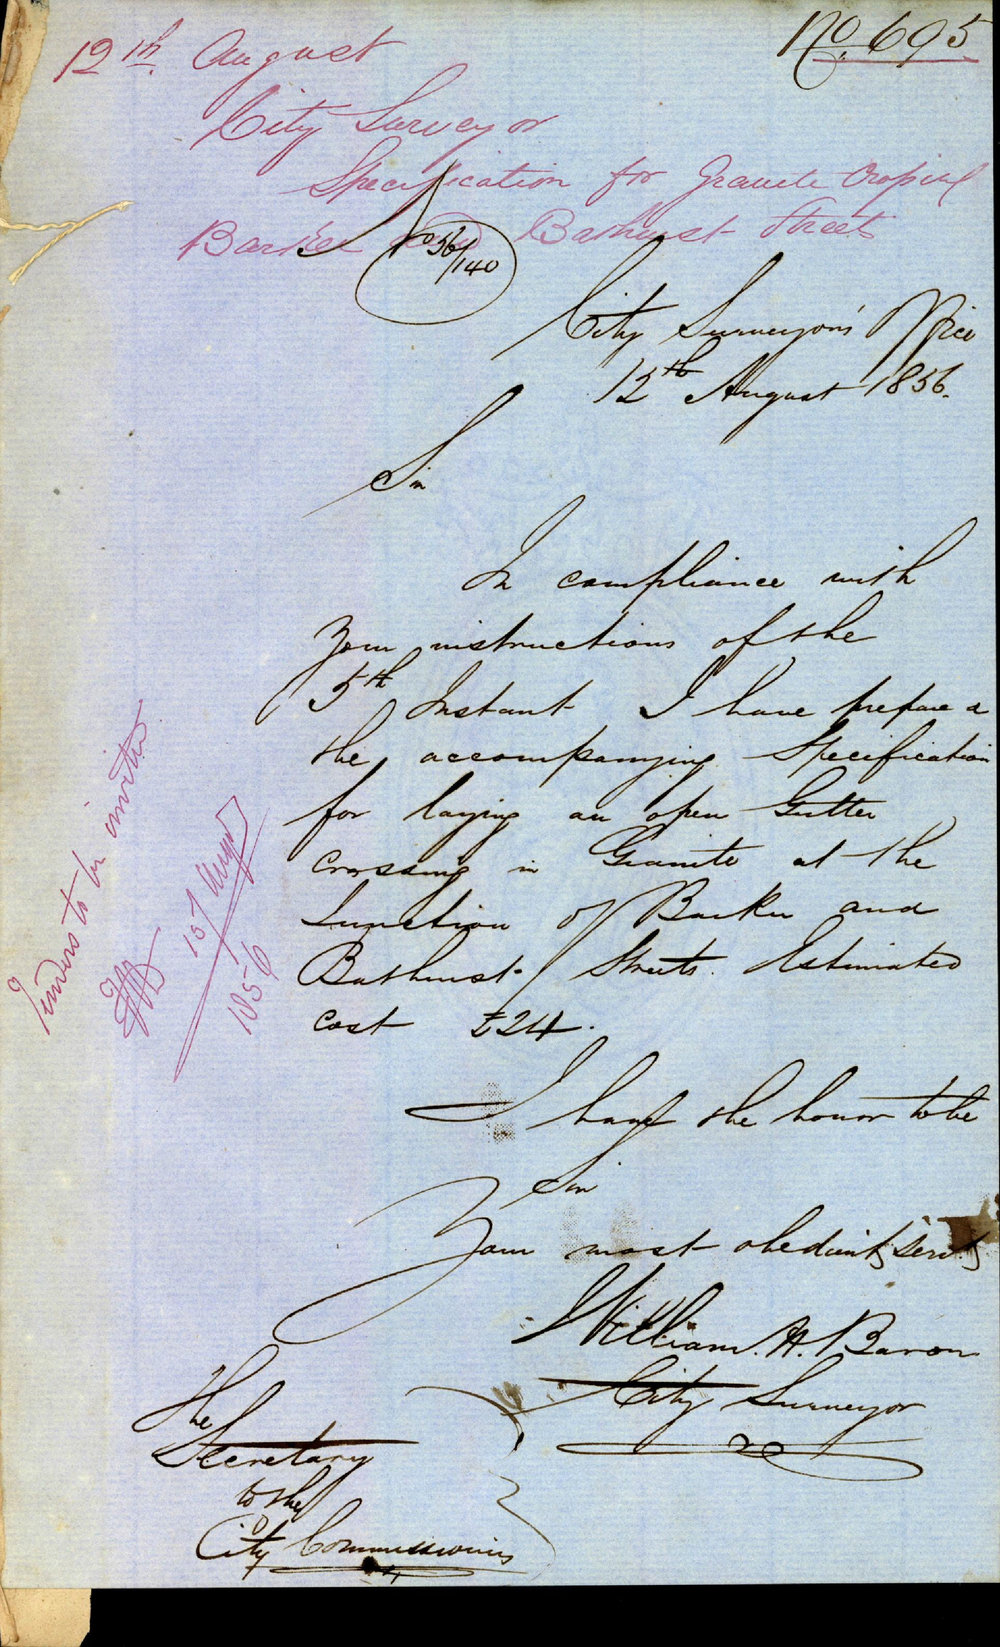 No. 695
12th. August
City Surveyor
Specification for Granite Crossing
Barker and Bathurst Street
No 56/140
City Surveyor's Office
12th August 1856.
Sir
In compliance with
your instructions of the
5th Instant I have prepared
the accompanying Specification
for laying an open Gutter
crossing in Granite at the
Junction of Barker and
Bathurst Streets. Estimated
cost £24.
I have the honor to be
Sir
Your most obedient Servt.
William. H. Baron
City Surveyor
The
Secretary
to the
City Commissioners
Tenders to be invited
15 Augt
1856